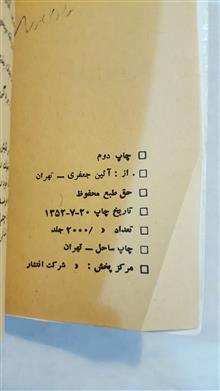 چاپ دوم
از : آئین جعفری — تهران
حق طبع محفوظ
تاریخ چاپ ۲۰-۷-۱۳۵۲
تعداد » ۲۰۰۰/ جلد
چاپ ساحل — تهران
مرکز پخش : » شرکت افتخار